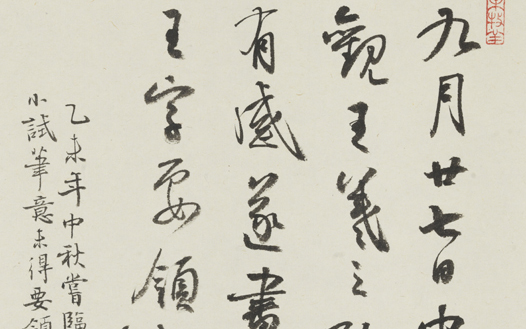 九月廿七日中
觀王羲之
有感遂書
王字要領
乙未年中秋嘗臨
小試筆意未得要領